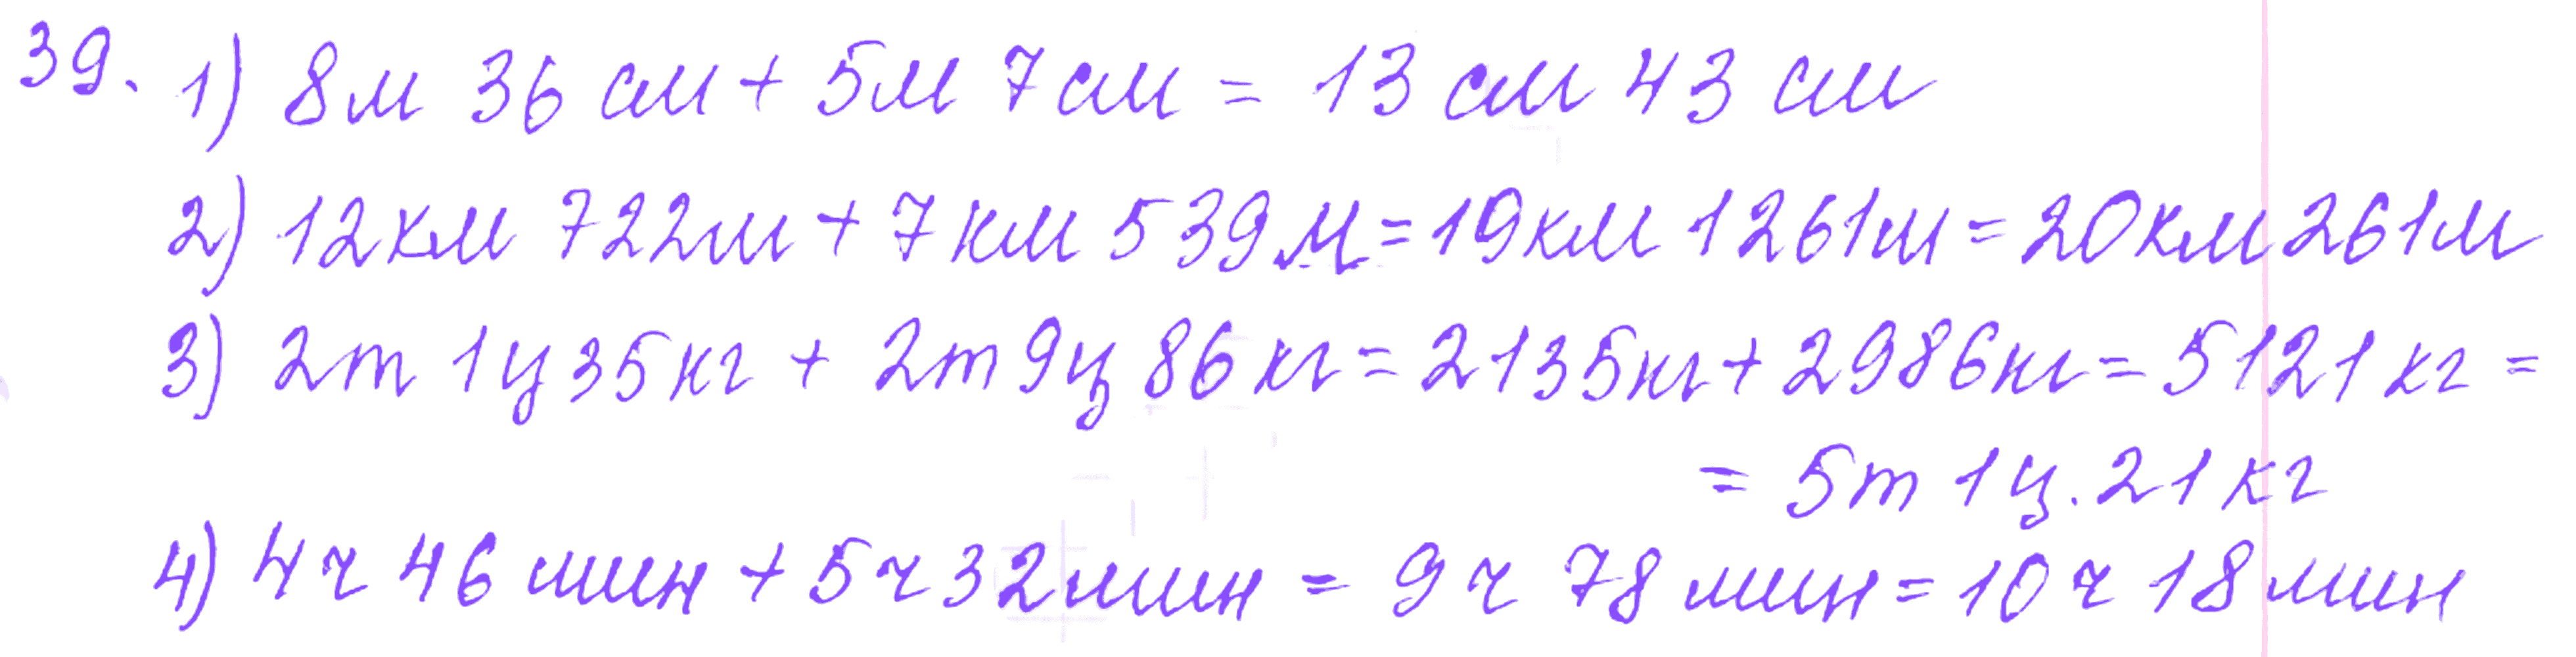 39. 1) 8м 36 см + 5м 7см = 13 см 43 см
2) 12км 722м + 7км 539м = 19км 1261м = 20км 261м
3) 2т 1ц 35кг + 2т 9ц 86 кг = 2135кг + 2986кг = 5121 кг =
= 5т 1ц. 21 кг
4) 4ч 46 мин + 5ч 32мин = 9ч 78 мин = 10ч 18мин